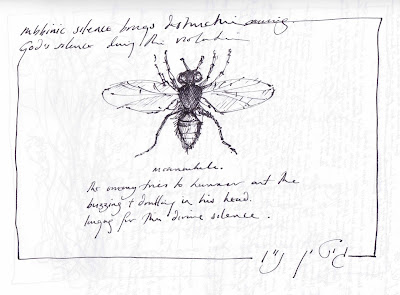 rabbinic silence brings destruction
God's silence during the violation
meanwhile.
the enemy tries to hammer out the
buzzing + drilling in his head.
longing for the divine silence.
גיטין נ״ו